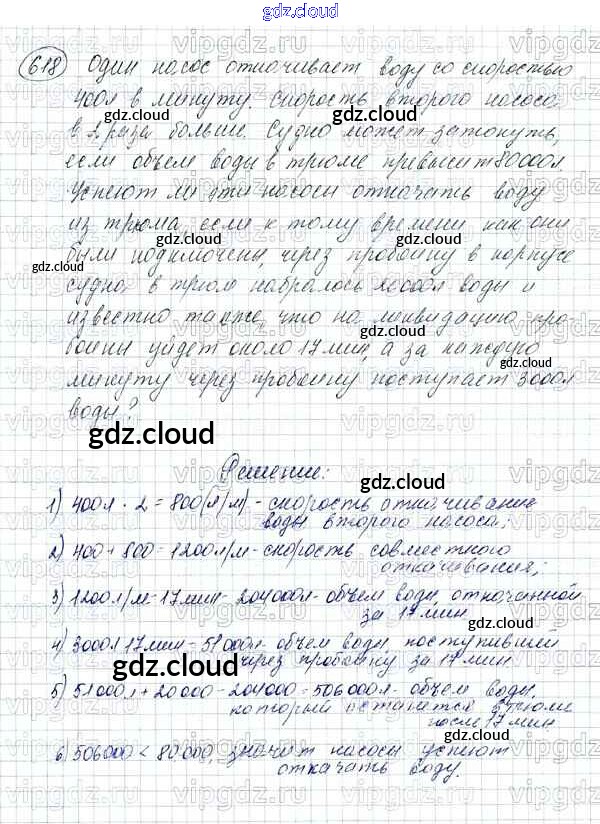 gdz.cloud
618 Один насос откачивает воду со скоростью
400л в минуту. Скорость второго насоса
gdz.cloud
в 2 раза больше. Судно может затонуть,
если объем воды в трюме превысит 80000л.
Успеют ли эти насосы откачать воду
из трюма, если к тому времени как они
gdz.cloud gdz.cloud
были подключены, через пробоину в корпусе
gdz.cloud
судна в трюм набралось 20000л воды и
известно также, что на ликвидацию про-
gdz.cloud
боины уйдет около 17 мин, а за каждую
gdz.cloud
минуту через пробоину поступает 3000л
воды?
gdz.cloud
Решение:
gdz.cloud
1) 400л · 2 = 800(л/м) - скорость откачивание
воды второго насоса;
gdz.cloud
2) 400 + 800 = 1200л/м - скорость совместного
откачивания;
3) 1200л/м · 17мин = 204000л - объем воды, откачанной
gdz.cloud
за 17 мин
4) 3000л 17мин = 51000л - объем воды, поступившей
gdz.cloud
через пробоину за 17 мин
5) 51000л + 20000 - 204000 = 506000л - объем воды,
который останется в трюме
gdz.cloud
после 17 мин.
6) 506000 < 80000, значит насосы успеют
gdz.cloud
откачать воду.